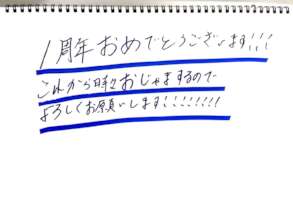 1周年おめでとうございます!!!
これから時々おじゃまするので
よろしくお願いします!!!!!!!!